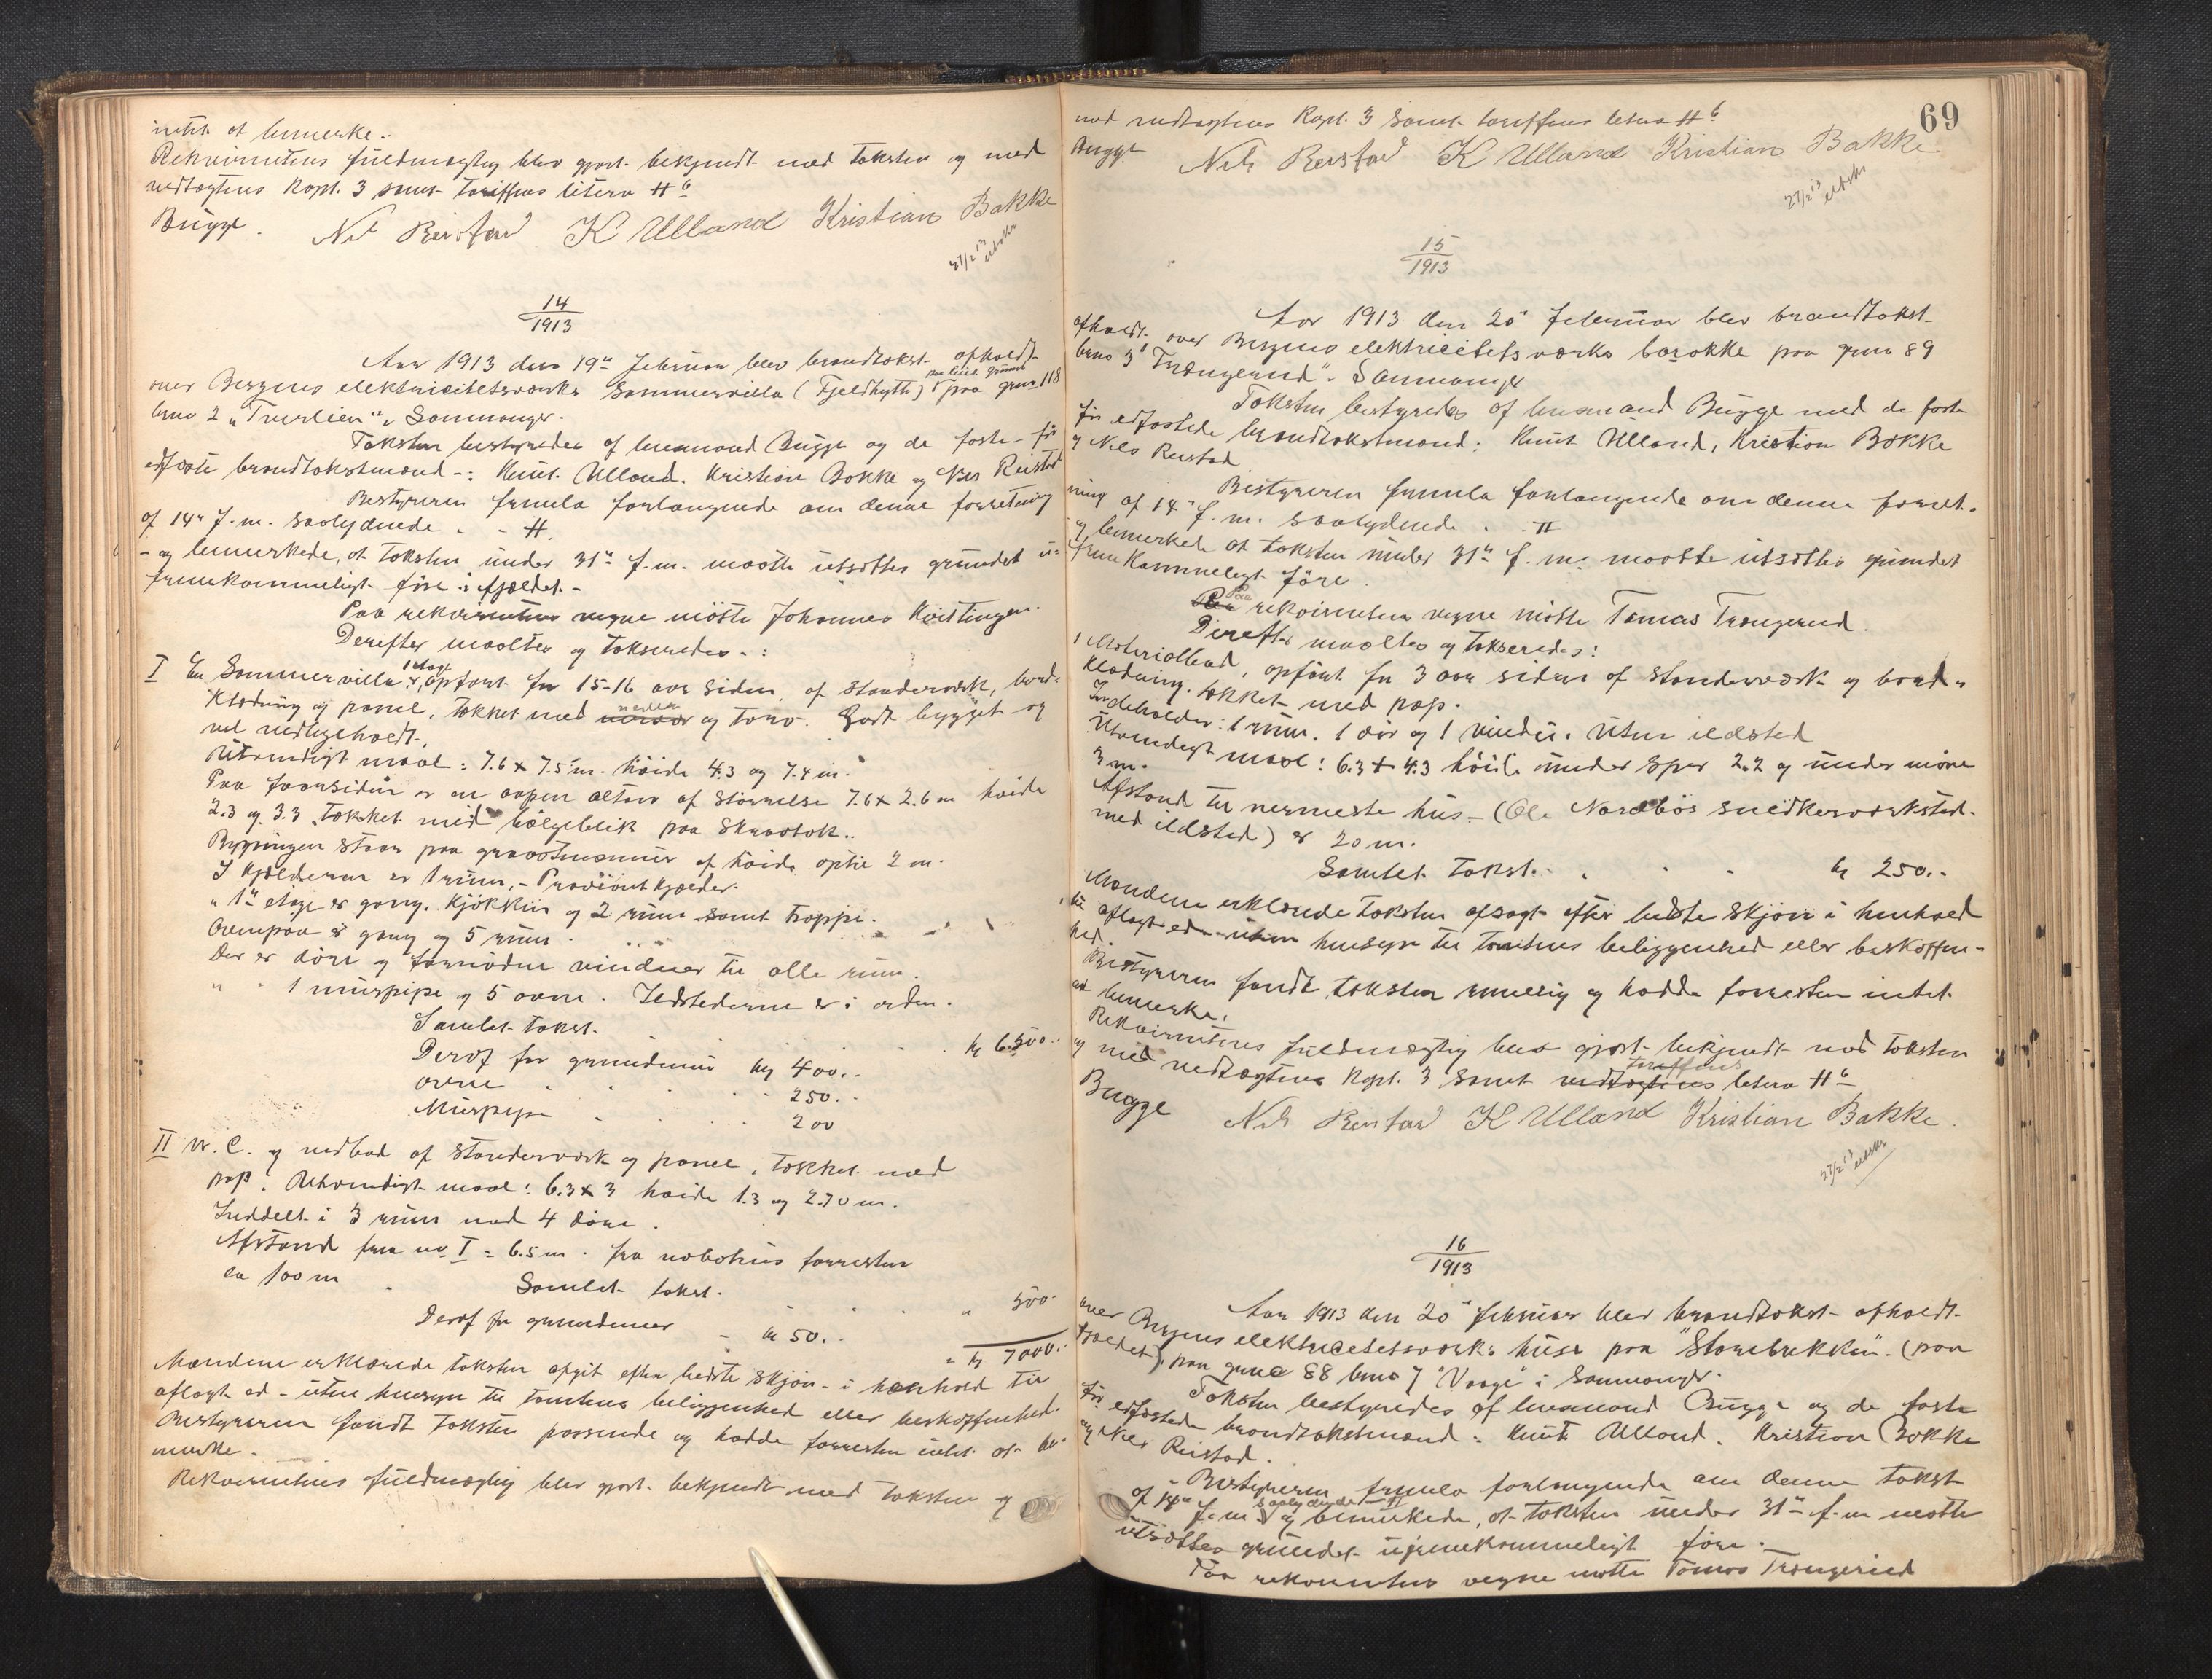 intet at bemerke.
Rekvirentens fuldmægtig blev gjort bekjendt med taksten og med
vedtægtens Kapt. 3 samt tariffens litera H 6
Bugge. Nils Reistad K Ulland Kristian Bakke
27/2 13 utskr
14
1913
Aar 1913 den 19de Februar blev brandtakst afholdt
over Bergens elektricitetsværks Sommervilla (Fjeldhytte) paa leiet grund paa gnr 118
brno 2 "Tverlien" i Samnanger.
Taksten bestyredes af lensmand Bugge og de faste for
edfæste brandtakstmænd: Knut Ulland, Kristian Bakke og Nils Reistad
Bestyreren fremla forlangende om denne forretning
af 14de f.m. saalydende - - H.
- og bemerkede, at taksten under 31te f.m. maatte utsættes grundet u-
fremkommeligt føre i fjeldet. -
Paa rekvirentens vegne møtte Johannes
Derefter maaltes og takseredes - :
I En Sommervilla 1 etage, opført for 15-16 aar siden, af Stenderverk, bord-
klædning og panel, tækket med næver og torv. Godt bygget og
vel vedligeholdt.
Utvendigt maal: 7.6 x 7.5 m. høide 4.3 og 7.4 m.
Paa forsiden er en aapen altan af størrelse 7.6 x 2.6 m høide
2.3 og 3.3, tækket med bølgeblik paa Skraatak..
Bygningen staar paa graastensmur af høide optil 2 m.
I kjælderen er 1 rum, - Proviantkjælder.
" 1ste etage er gang, kjøkken og 2 rum samt trappe.
Ovenpaa er gang og 5 rum.
Der er døre og fornødne vinduer til alle rum.
" " 1 murpipe og 5 ovne. Ildstederne er i orden.
Samlet takst. kr 6.500..
Deraf for grundmur kr 400..
ovne 250..
Murpipe 200
II W.C. og vedbod af Stenderverk og panel, tækket med
pap. Utvendigt maal: 6.3 x 3 høide 1.3 og 2.70 m.
Inddelt i 3 rum med 4 døre.
Afstand fra no I = 6.5 m. fra nabohus forresten
ca 100 m
Samlet takst. " 500.
Deraf for grundmur - kr 50..
= kr 7000..
Mændene erklærede taksten afgit efter bedste skjøn - i henhold til
aflagt ed - uten hensyn til tomtens beliggenhed eller beskaffenhed.
Bestyreren fandt taksten passende og hadde forresten intet at be-
merke.
Rekvirentens fuldmægtig blev gjort bekjendt med taksten og
69
med vedtægtens Kapt. 3 samt tariffens litra H 6
Bugge Nils Reistad K Ulland Kristian Bakke
27/2 13 utskr
15
1913
Aar 1913 den 20de Februar blev brandtakst
afholdt over Bergens elektricitetsværks barakke paa gnr 89
brno 3 "Trængereid". Samnanger
Taksten bestyredes af lensmand Bugge med de faste
for edfæstede brandtakstmænd: Knut Ulland, Kristian Bakke
og Nils Reistad
Bestyreren fremla forlangende om denne forret-
ning af 14de f.m. saalydende . . H
og bemerkede at taksten under 31te f.m. maatte utsættes grundet
fremkommeligt føre.
Paa rekvirentens vegne møtte Tomas Trængereid.
Derefter maaltes og takseredes:
1 Materialbod, opført for 3 aar siden af Stenderverk og bord-
klædning, tækket med pap.
Indeholder: 1 rum, 1 dør og 1 vindu. Uten ildsted
Utvendigt maal: 6.3 x 4.3 høide under Sper 2.2 og under møne
3 m.
Afstand til nermeste hus - (Ole Nordbøs snedkerverksted.
med ildsted) er 20 m.
Samlet takst. . . . kr 250..
Mændene erklærede taksten afsagt efter bedste skjøn i henhold
til aflagt ed - uten hensyn til tomtens beliggenhed eller beskaffen-
hed.
Bestyreren fandt taksten rimelig og hadde forresten intet
at bemerke.
Rekvirentens fuldmægtig blev gjort bekjendt med taksten
og med vedtægtens Kapt. 3 samt vedtægtens tariffens litera H 6
Bugge Nils Reistad K Ulland Kristian Bakke.
27/2 13 utskr
16
1913
Aar 1913 den 20de Februar blev brandtakst afholdt
over Bergens elektricitetsværks huse paa "Storebrekken". (paa
fjeldet), paa gnr 88 brno 7 "Vaage" i Samnanger.
Taksten bestyredes af lensmand Bugge og de faste
for edfæstede brandtakstmænd: Knut Ulland, Kristian Bakke
og Nils Reistad.
Bestyreren fremla forlangende om denne takst
af 14de f.m. saalydende H og bemerkede, at taksten under 31te f.m maatte
utsættes grundet ufremkommeligt føre.
Paa rekvirentens vegne møtte Tomas Trængereid